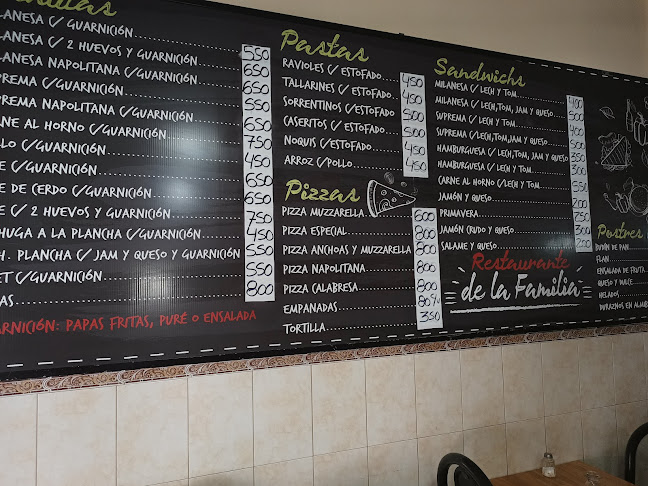 LANESA C/ GUARNICIÓN
LANESA C/ 2 HUEVOS Y GUARNICIÓN 550
LANESA NAPOLITANA C/GUARNICIÓN 650
PREMA C/GUARNICIÓN 650
PREMA NAPOLITANA C/GUARNICIÓN 550
RNE AL HORNO C/GUARNICIÓN 650
LLO C/GUARNICIÓN 750
E C/GUARNICIÓN 450
E DE CERDO C/GUARNICIÓN 650
E C/ 2 HUEVOS Y GUARNICIÓN 650
HUGA A LA PLANCHA C/GUARNICIÓN 750
H. PLANCHA C/ JAM Y QUESO Y GUARNICIÓN 450
ET C/GUARNICIÓN 550
AS 800
ARNICIÓN: PAPAS FRITAS, PURÉ O ENSALADA
Pastas
RAVIOLES C/ ESTOFADO 450
TALLARINES C/ ESTOFADO 450
SORRENTINOS C/ESTOFADO 500
CASERITOS C/ ESTOFADO 500
NOQUIS C/ESTOFADO 450
ARROZ C/POLLO 450
Pizzas
PIZZA MUZZARELLA 600
PIZZA ESPECIAL 800
PIZZA ANCHOAS Y MUZZARELLA 800
PIZZA NAPOLITANA 800
PIZZA CALABRESA 800
EMPANADAS 80%
TORTILLA 350
Sandwichs
MILANESA C/ LECH Y TOM 400
MILANESA C/ LECH,TOM, JAM Y QUESO 500
SUPREMA C/ LECH Y TOM 400
SUPREMA C/ LECH,TOM,JAM Y QUESO 500
HAMBURGUESA C/ LECH Y TOM
HAMBURGUESA C/ LECH,TOM, JAM Y QUESO
CARNE AL HORNO C/LECH Y TOM
JAMÓN Y QUESO 200
PRIMAVERA
JAMÓN CRUDO Y QUESO 300
SALAME Y QUESO 200
Restaurante
de la Familia
Postres
BUDÍN DE PAN
FLAN
ENSALADA DE FRUTA
QUESO Y DULCE
HELADOS
DURAZNOS EN ALMÍB